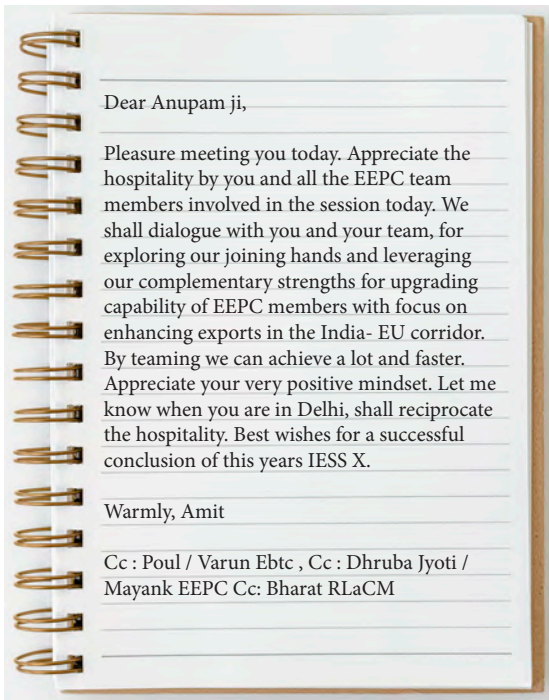 Dear Anupam ji,
Pleasure meeting you today. Appreciate the
hospitality by you and all the EEPC team
members involved in the session today. We
shall dialogue with you and your team, for
exploring our joining hands and leveraging
our complementary strengths for upgrading
capability of EEPC members with focus on
enhancing exports in the India- EU corridor.
By teaming we can achieve a lot and faster.
Appreciate your very positive mindset. Let me
know when you are in Delhi, shall reciprocate
the hospitality. Best wishes for a successful
conclusion of this years IESS X.
Warmly, Amit
Cc : Poul / Varun Ebtc , Cc : Dhruba Jyoti /
Mayank EEPC Cc: Bharat RLaCM